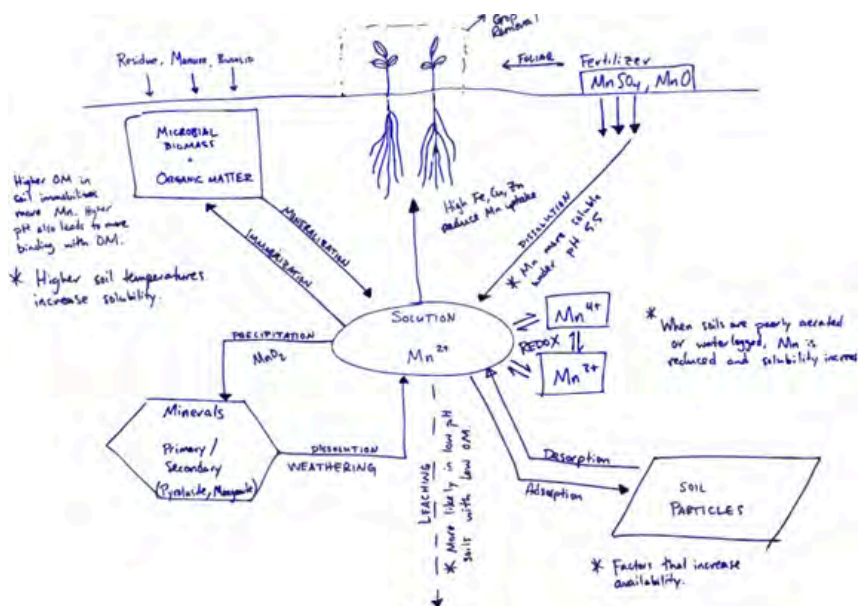 Crop
Removal
Residue, Manure, Biosolid
FOLIAR
Fertilizer
MnSO4, MnO
MICROBIAL
BIOMASS
+
ORGANIC MATTER
Higher OM in
soil immobilizes
more Mn. Higher
pH also leads to more
binding with OM.
* Higher soil temperatures
increase solubility.
IMMOBILIZATION
MINERALIZATION
High Fe, Cu, Zn
reduce Mn uptake
DISSOLUTION
* Mn more soluble
under pH 5.5
SOLUTION
Mn2+
REDOX
Mn4+
* When soils are poorly aerated
or waterlogged, Mn is
reduced and solubility increases
PRECIPITATION
MnO2
Minerals
Primary/
Secondary
(Pyrolusite, Manganite)
DISSOLUTION
WEATHERING
LEACHING
* More likely in low pH
soils with low OM.
Desorption
Adsorption
SOIL
PARTICLES
* Factors that increase
availability.